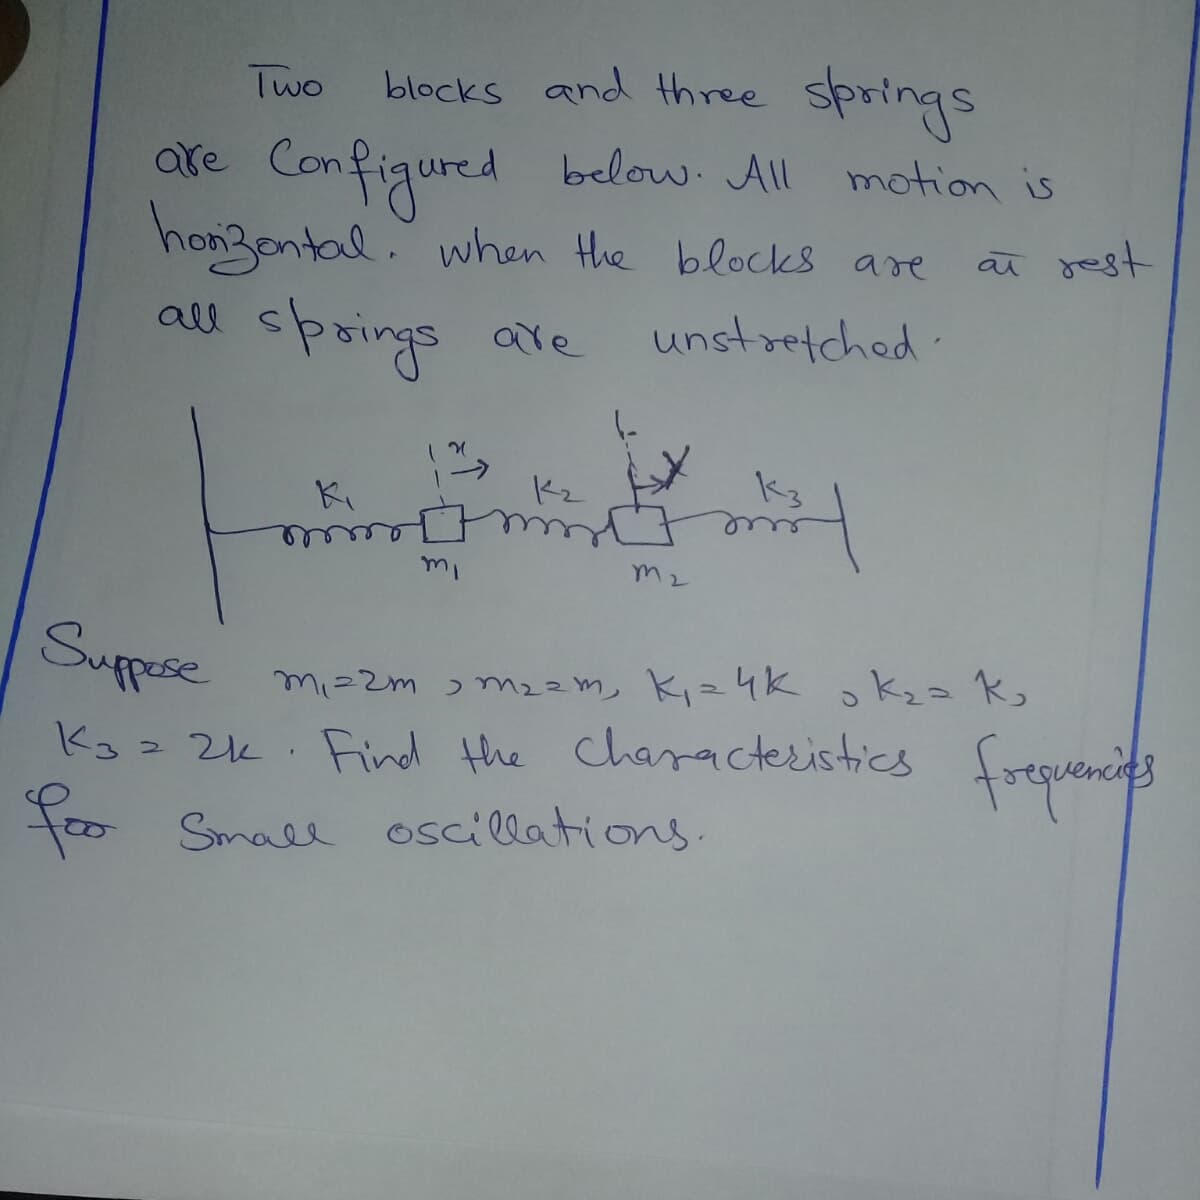 Two blocks and three springs
are Configured below. All motion is
horizontal. when the blocks are at rest
all springs are unstretched.
x
K1
k2
k3
m1
m2
Suppose m1=2m, m2=m, K1=4K, K2=K,
K3=2k. Find the Characteristics frequencies
for Small oscillations.